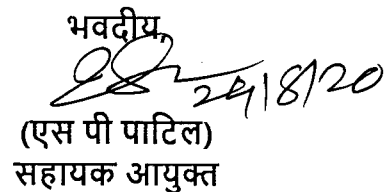 भवदीय,
24/8/20
(एस पी पाटिल)
सहायक आयुक्त